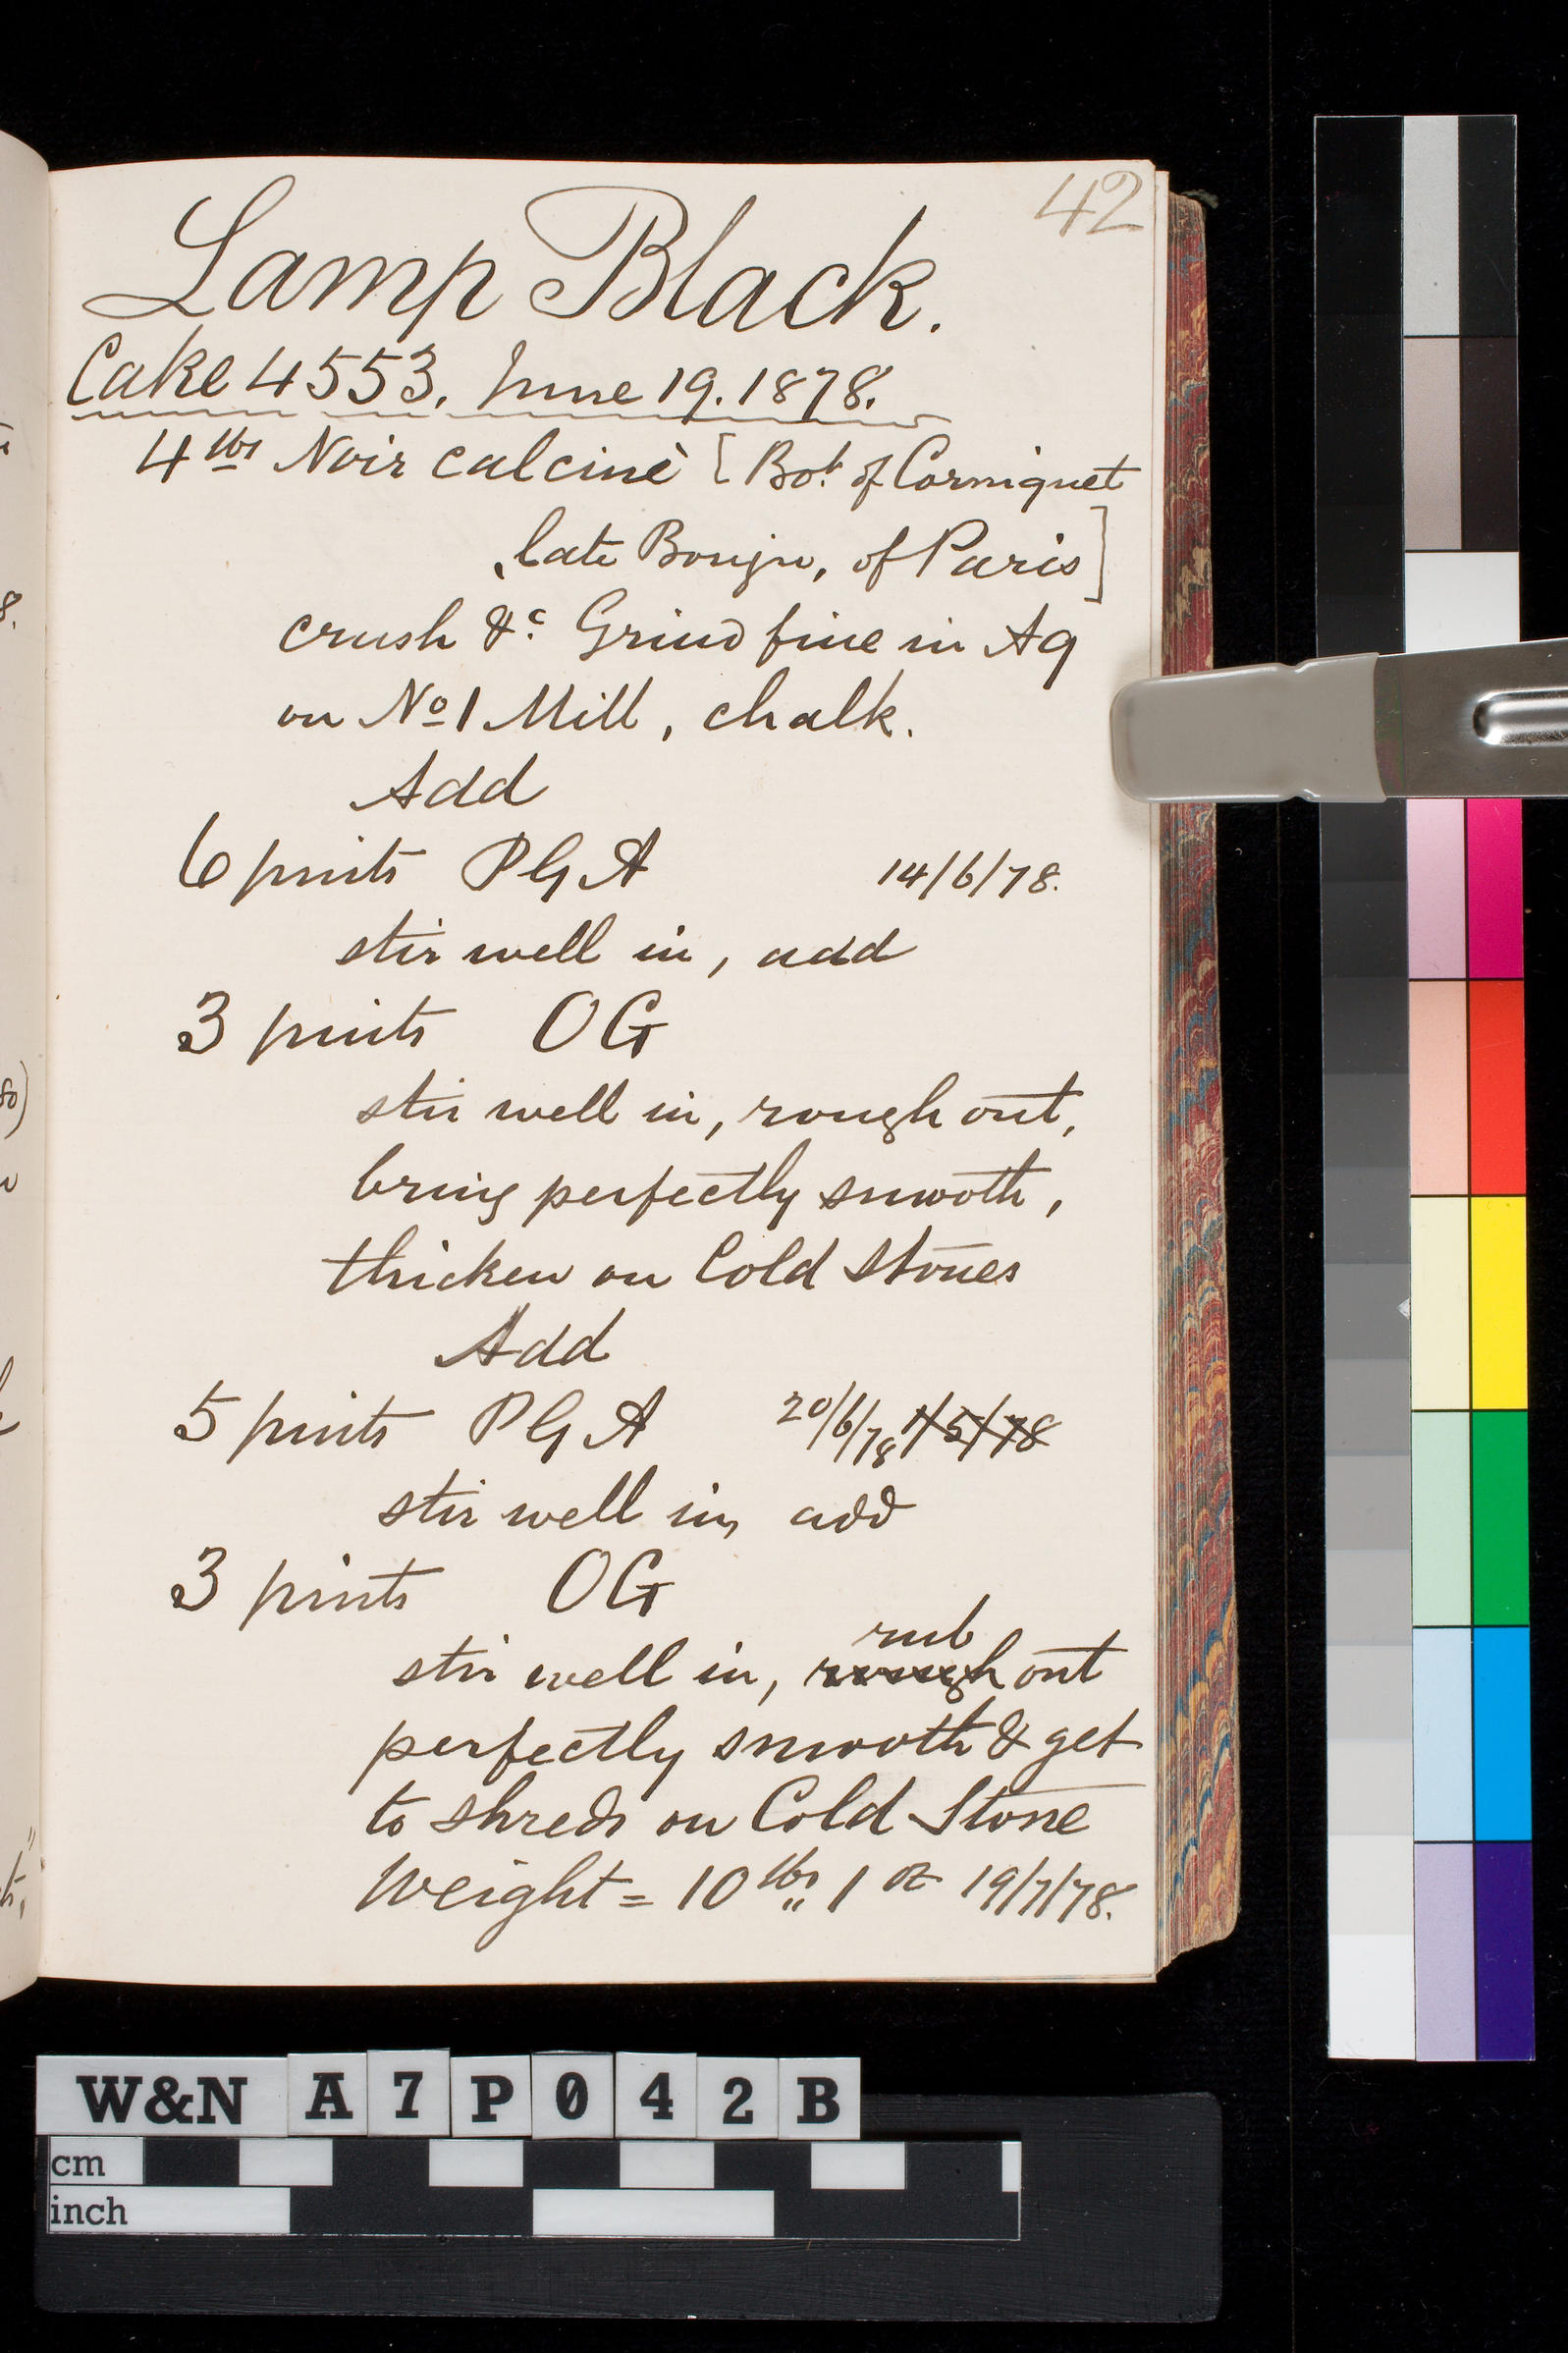 42
Lamp Black.
Cake 4553. June 19. 1878.
4 lbs Noir calciné [Bot. of Cormiquet
, late Bouju, of Paris]
crush &c Grind fine in Aq
on No 1 Mill, chalk.
Add
6 pints PGA 14/6/78.
stir well in, add
3 pints OG
stir well in, rough out,
bring perfectly smooth,
thicken on Cold Stones
Add
5 pints PGA 20/6/78 1/5/78
stir well in, add
3 pints OG
rub
stir well in, rough out
perfectly smooth & get
to shreds on Cold Stone
Weight = 10 lbs,, 1 oz 19/7/78.
W&N A7P042B
cm
inch